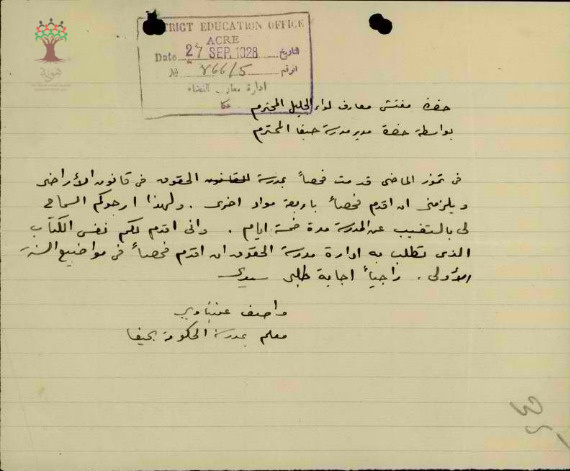 DISTRICT EDUCATION OFFICE
ACRE
Date 27 SEP. 1928 التاريخ
No 766/5 الرقم
ادارة معارف القضاء
عكا
حضرة مفتش معارف لواء الجليل المحترم
بواسطة حضرة مدير مدرسة حيفا المحترم
في تموز الماضي قدمت فحصاً بمدرسة الحقوق في قانون الأراضي
ويلزمني ان اقدم فحصاً باربعة مواد اخرى . ولهذا ارجوكم السماح
لي بالتغيب عن المدرسة مدة خمسة ايام . واني اقدم لكم نفس الكتاب
الذي تطلب به ادارة مدرسة الحقوق ان اقدم فحصاً في مواضيع السنة
الأولى . راجياً اجابة طلبي سيدي
واصف عنبتاوي
معلم بمدرسة الحكومة بحيفا